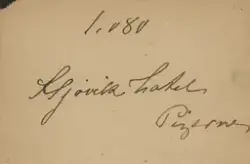 1.080
Gjøvik Hotel